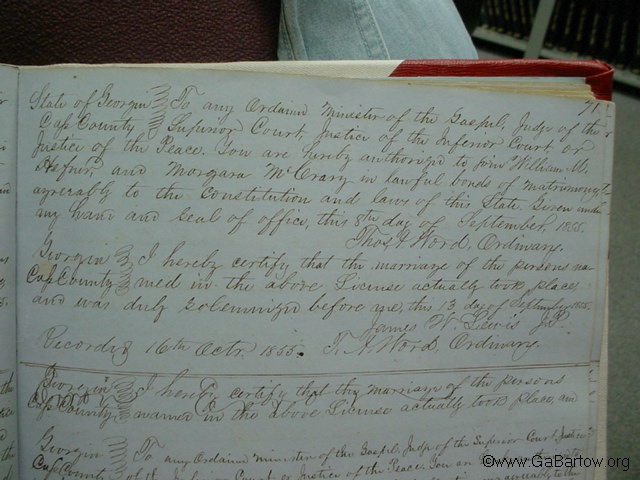 71
State of Georgia To any Ordained Minister of the Gospel, Judge of the
Cass County Superior Court, Justice of the Inferior Court or
Justice of the Peace. You are hereby authorized to join William M.
Hefner, and Morgara McCrary in lawful bonds of matrimony,
agreeably to the Constitution and laws of this State. Given under
my hand and Seal of office, this 8th day of September, 1855.
Thos A Word, Ordinary.
Georgia I hereby certify that the marriage of the persons na-
Cass County med in the above License actually took place
and was duly solemnized before me, this 13 day of September 1855.
James W. Lewis J.P.
Recorded 16th Octr. 1855. T. A Word, Ordinary.
Georgia I hereby certify that the marriage of the persons
Cass County named in the above License actually took place, and
Georgia To any Ordained Minister of the Gospel, Judge of the Superior Court, Justice
Cass County of the Inferior Court or Justice of the Peace. You are
©www.GaBartow.org